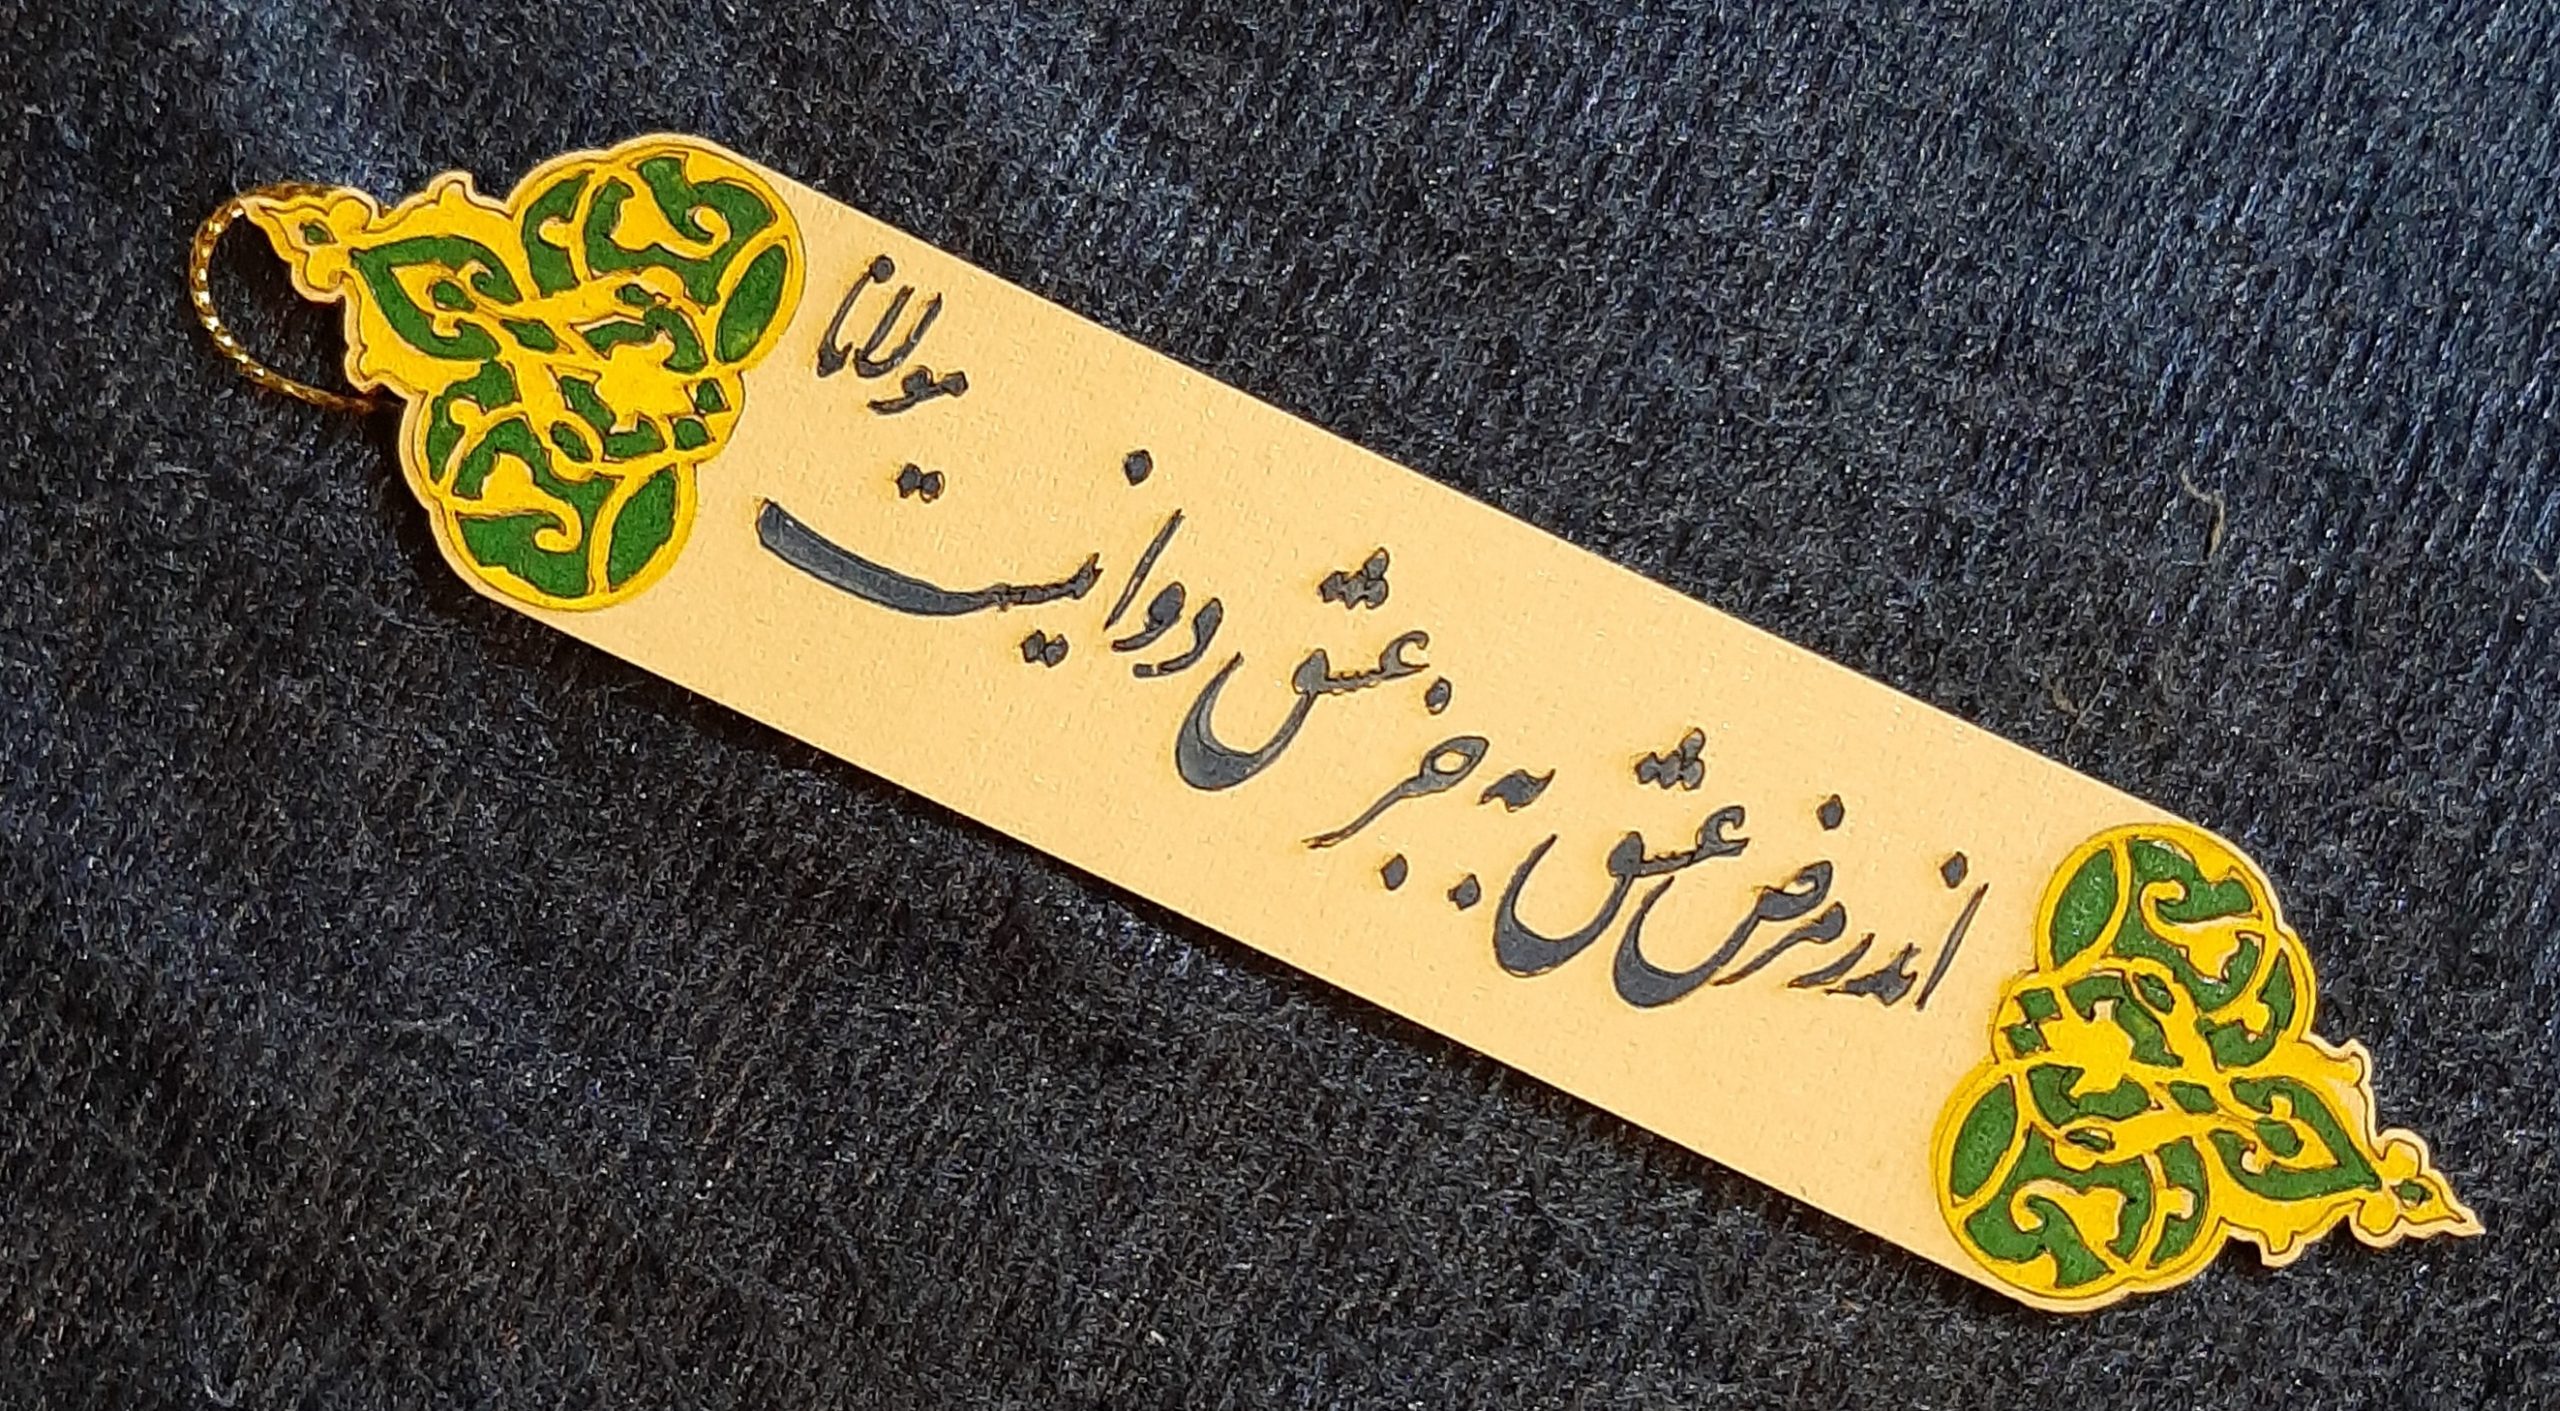 اندر مرض عشق به جز عشق دوا نیست
مولانا